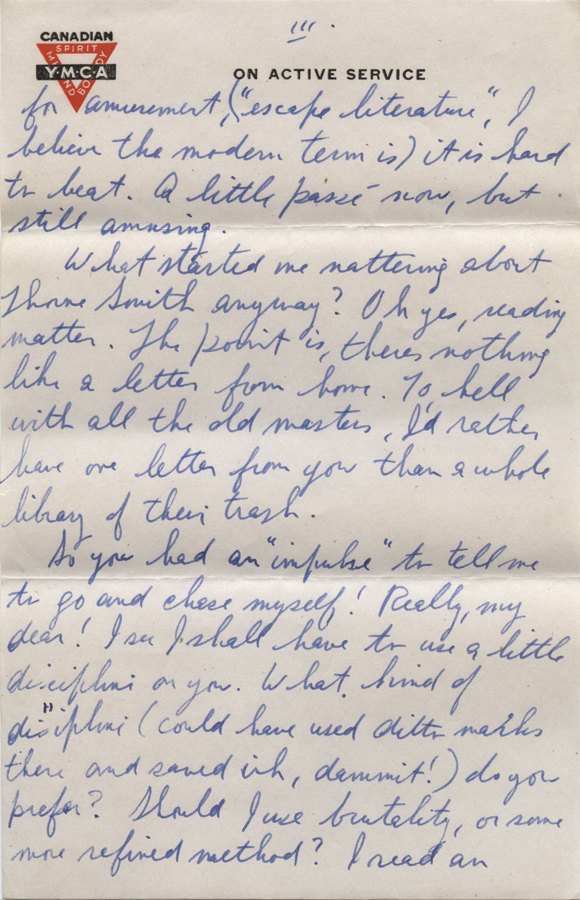 III.
CANADIAN
SPIRIT
MIND
BODY
Y·M·C·A
ON ACTIVE SERVICE
for amusement, ("escape literature", I
believe the modern term is) it is hard
to beat. A little passé now, but
still amusing.
What started me nattering about
Thorne Smith anyway? Oh yes, reading
matter. The point is, theres nothing
like a letter from home. To hell
with all the old masters, I'd rather
have one letter from you than a whole
library of their trash.
So you had an "impulse" to tell me
to go and chase myself! Really, my
dear! I see I shall have to use a little
discipline on you. What kind of
"
discipline (could have used ditto marks
there and saved ink, dammit!) do you
prefer? Should I use brutality, or some
more refined method? I read an